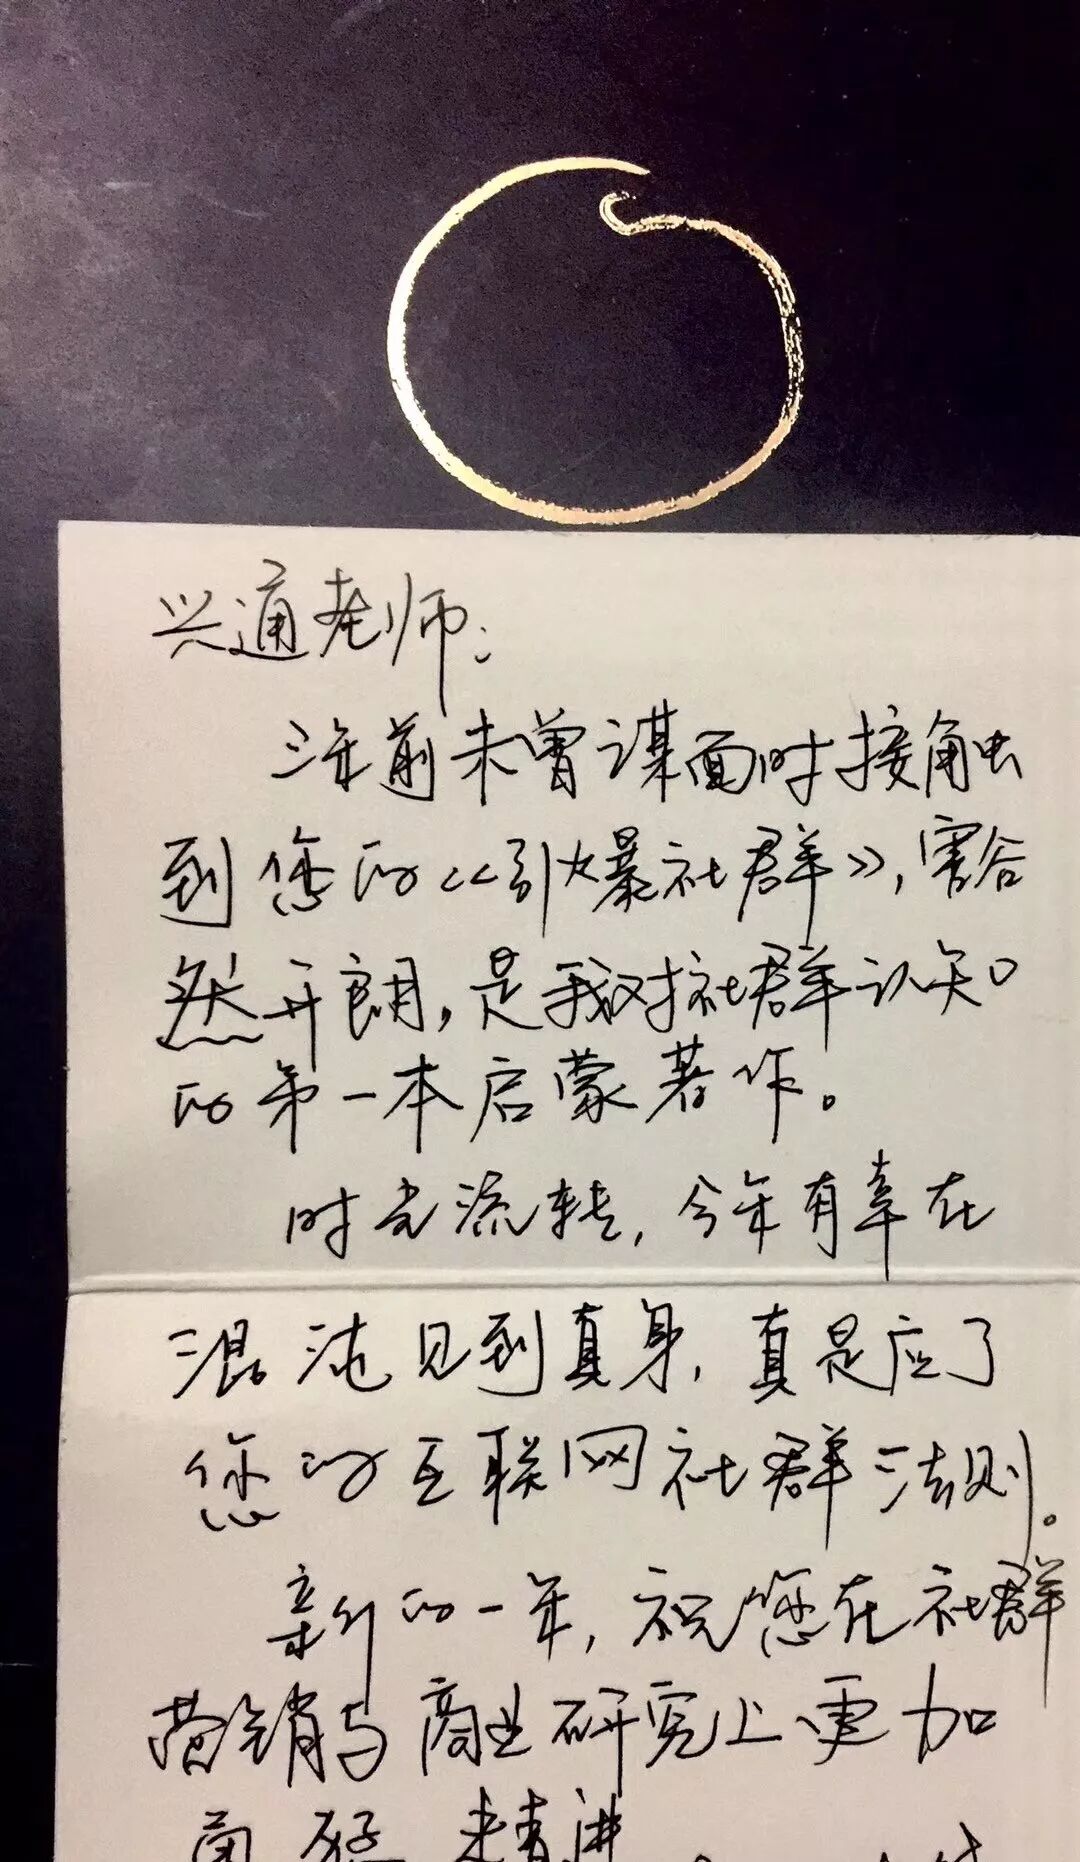 兴通老师:
三年前未曾谋面时接触
到您的《引爆社群》,豁
然开朗,是我对社群认知
的第一本启蒙著作。
时光流转,今年有幸在
混沌见到真身,真是应了
您的互联网社群法则。
新的一年,祝您在社群
营销与商业研究上更加
精进